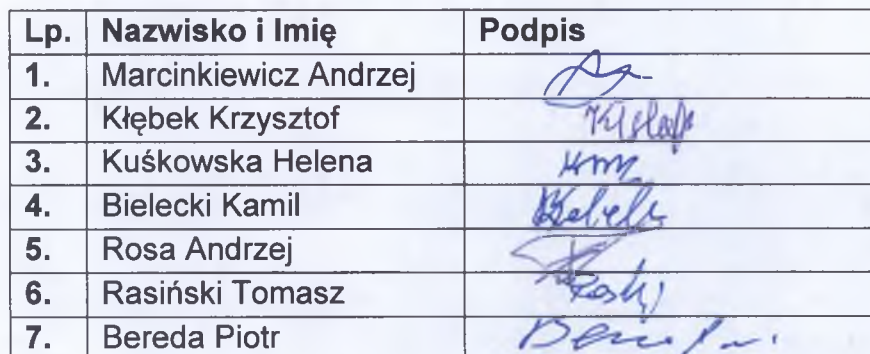 Lp. Nazwisko i Imię Podpis
1. Marcinkiewicz Andrzej
2. Kłębek Krzysztof
3. Kuśkowska Helena
4. Bielecki Kamil
5. Rosa Andrzej
6. Rasiński Tomasz
7. Bereda Piotr